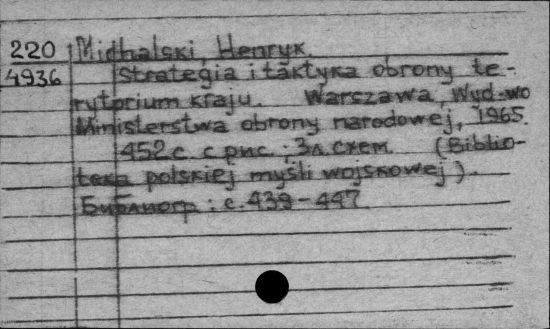 220 Michalski, Henryk.
4936 Strategia i taktyka obrony te-
rytorium kraju. Warszawa, Wyd-wo
Ministerstwa obrony narodowej, 1965.
452 с. с рис.; 3 л. схем. (Biblio-
teka polskiej myśli wojskowej).
Библиогр.: с. 439-447.